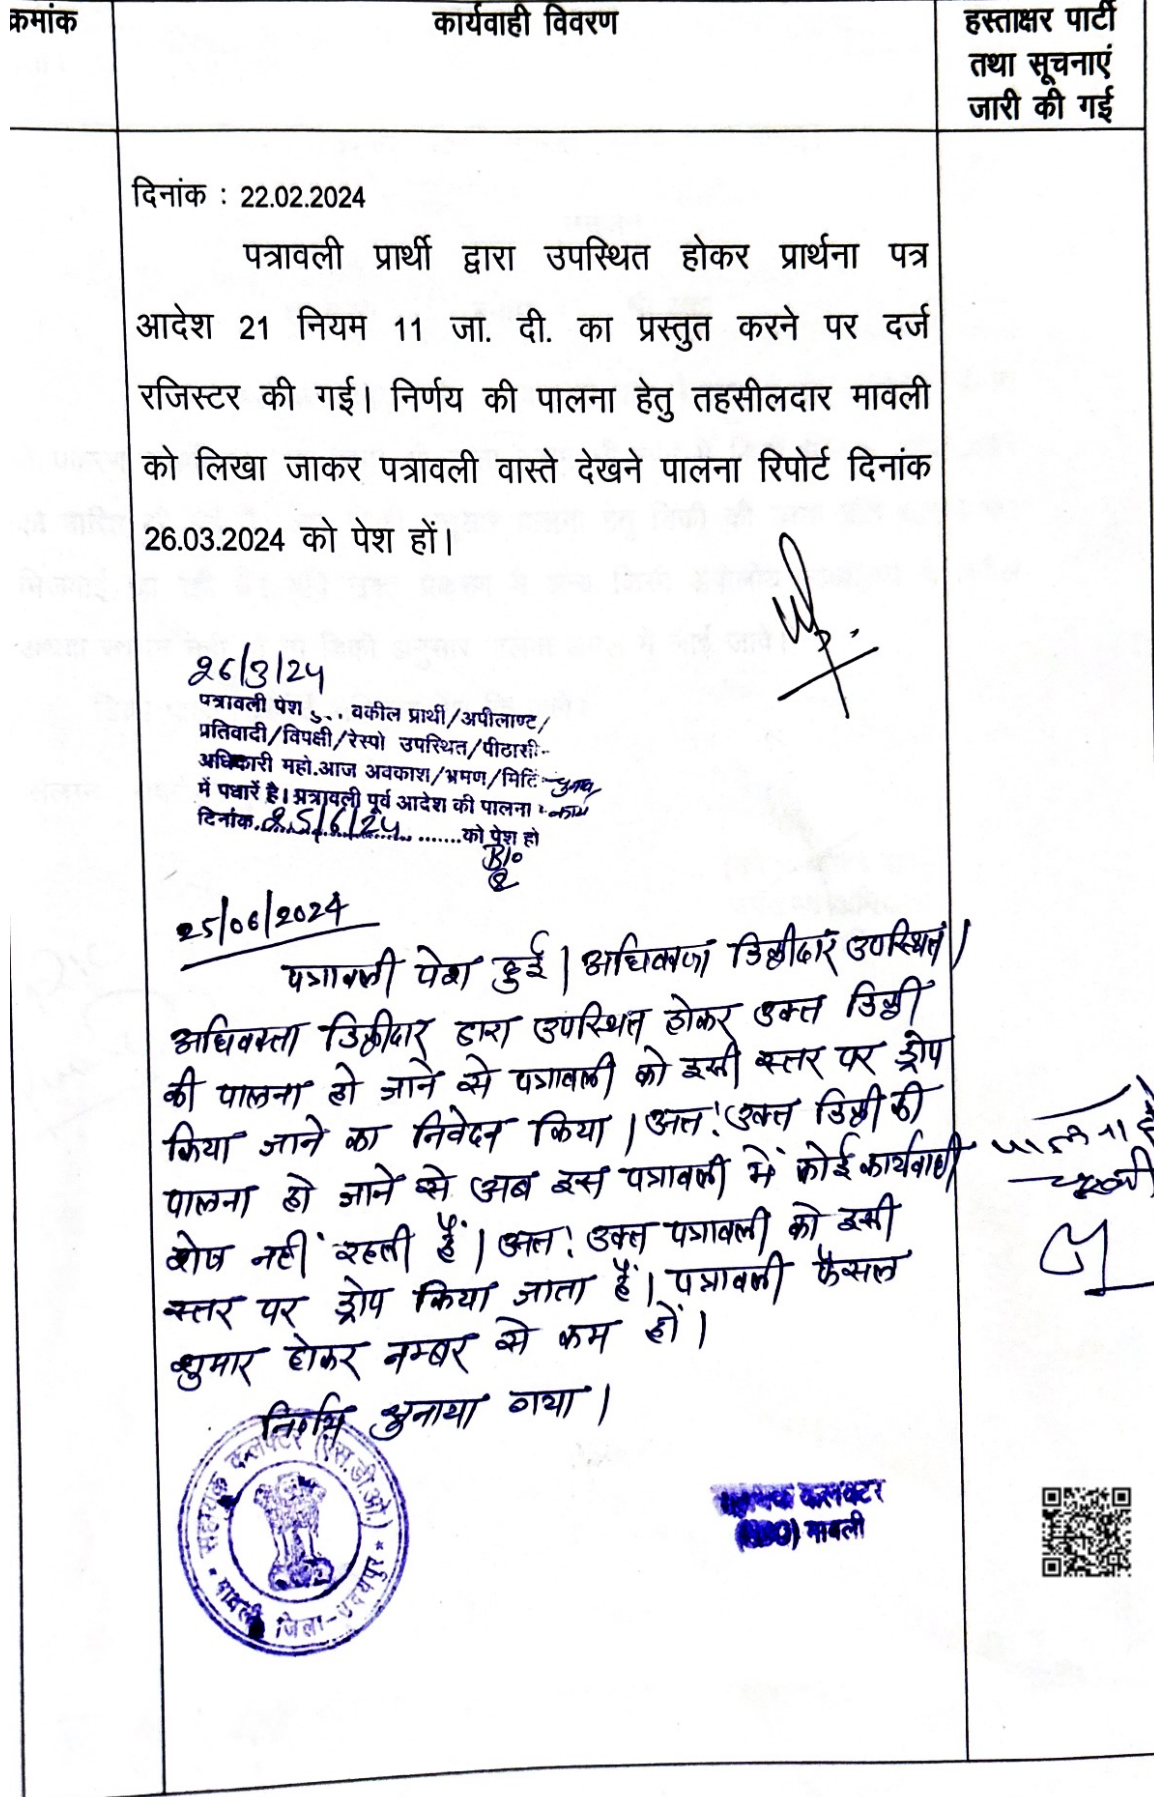 क्रमांक
कार्यवाही विवरण
हस्ताक्षर पार्टी
तथा सूचनाएं
जारी की गई
दिनांक : 22.02.2024
पत्रावली प्रार्थी द्वारा उपस्थित होकर प्रार्थना पत्र
आदेश 21 नियम 11 जा. दी. का प्रस्तुत करने पर दर्ज
रजिस्टर की गई। निर्णय की पालना हेतु तहसीलदार मावली
को लिखा जाकर पत्रावली वास्ते देखने पालना रिपोर्ट दिनांक
26.03.2024 को पेश हों।
26/3/24
पत्रावली पेश वकील प्रार्थी/अपीलाण्ट/
प्रतिवादी/विपक्षी/रेस्पो उपस्थित/पीठासी
अधिकारी महो.आज अवकाश/भ्रमण/मिटिं चुनाव
में पधारें है। प्रत्रावली पूर्व आदेश की पालना कार्य
दिनांक 25/6/24 को पेश हो
25/06/2024
पत्रावली पेश हुई। अधिवक्ता डिक्रीदार उपस्थित।
अधिवक्ता डिक्रीदार द्वारा उपस्थित होकर उक्त डिक्री
की पालना हो जाने से पत्रावली को इसी स्तर पर ड्रोप
किया जाने का निवेदन किया। अतः उक्त डिक्री की
पालना हो जाने से अब इस पत्रावली में कोई कार्यवाही
शेष नहीं रहती हैं। अतः उक्त पत्रावली को इसी
स्तर पर ड्रोप किया जाता हैं। पत्रावली फैसल
शुमार होकर नम्बर से कम हों।
निर्णय सुनाया गया।
सहायक कलक्टर (एस.डी.ओ)
मावली जिला-उदयपुर
सहायक कलक्टर
(SDO) मावली